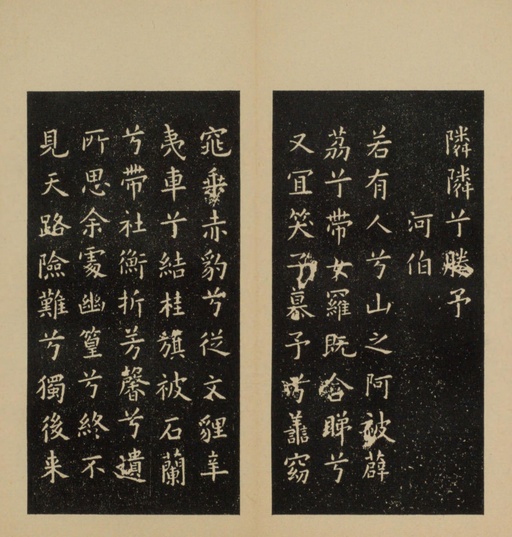 隣隣兮媵予
河伯
若有人兮山之阿被薜
荔兮帶女羅既含睇兮
又宜笑子慕予兮善窈
窕乘赤豹兮從文貍辛
夷車兮結桂旗被石蘭
兮帶社衡折芳馨兮遺
所思余處幽篁兮終不
見天路險難兮獨後来